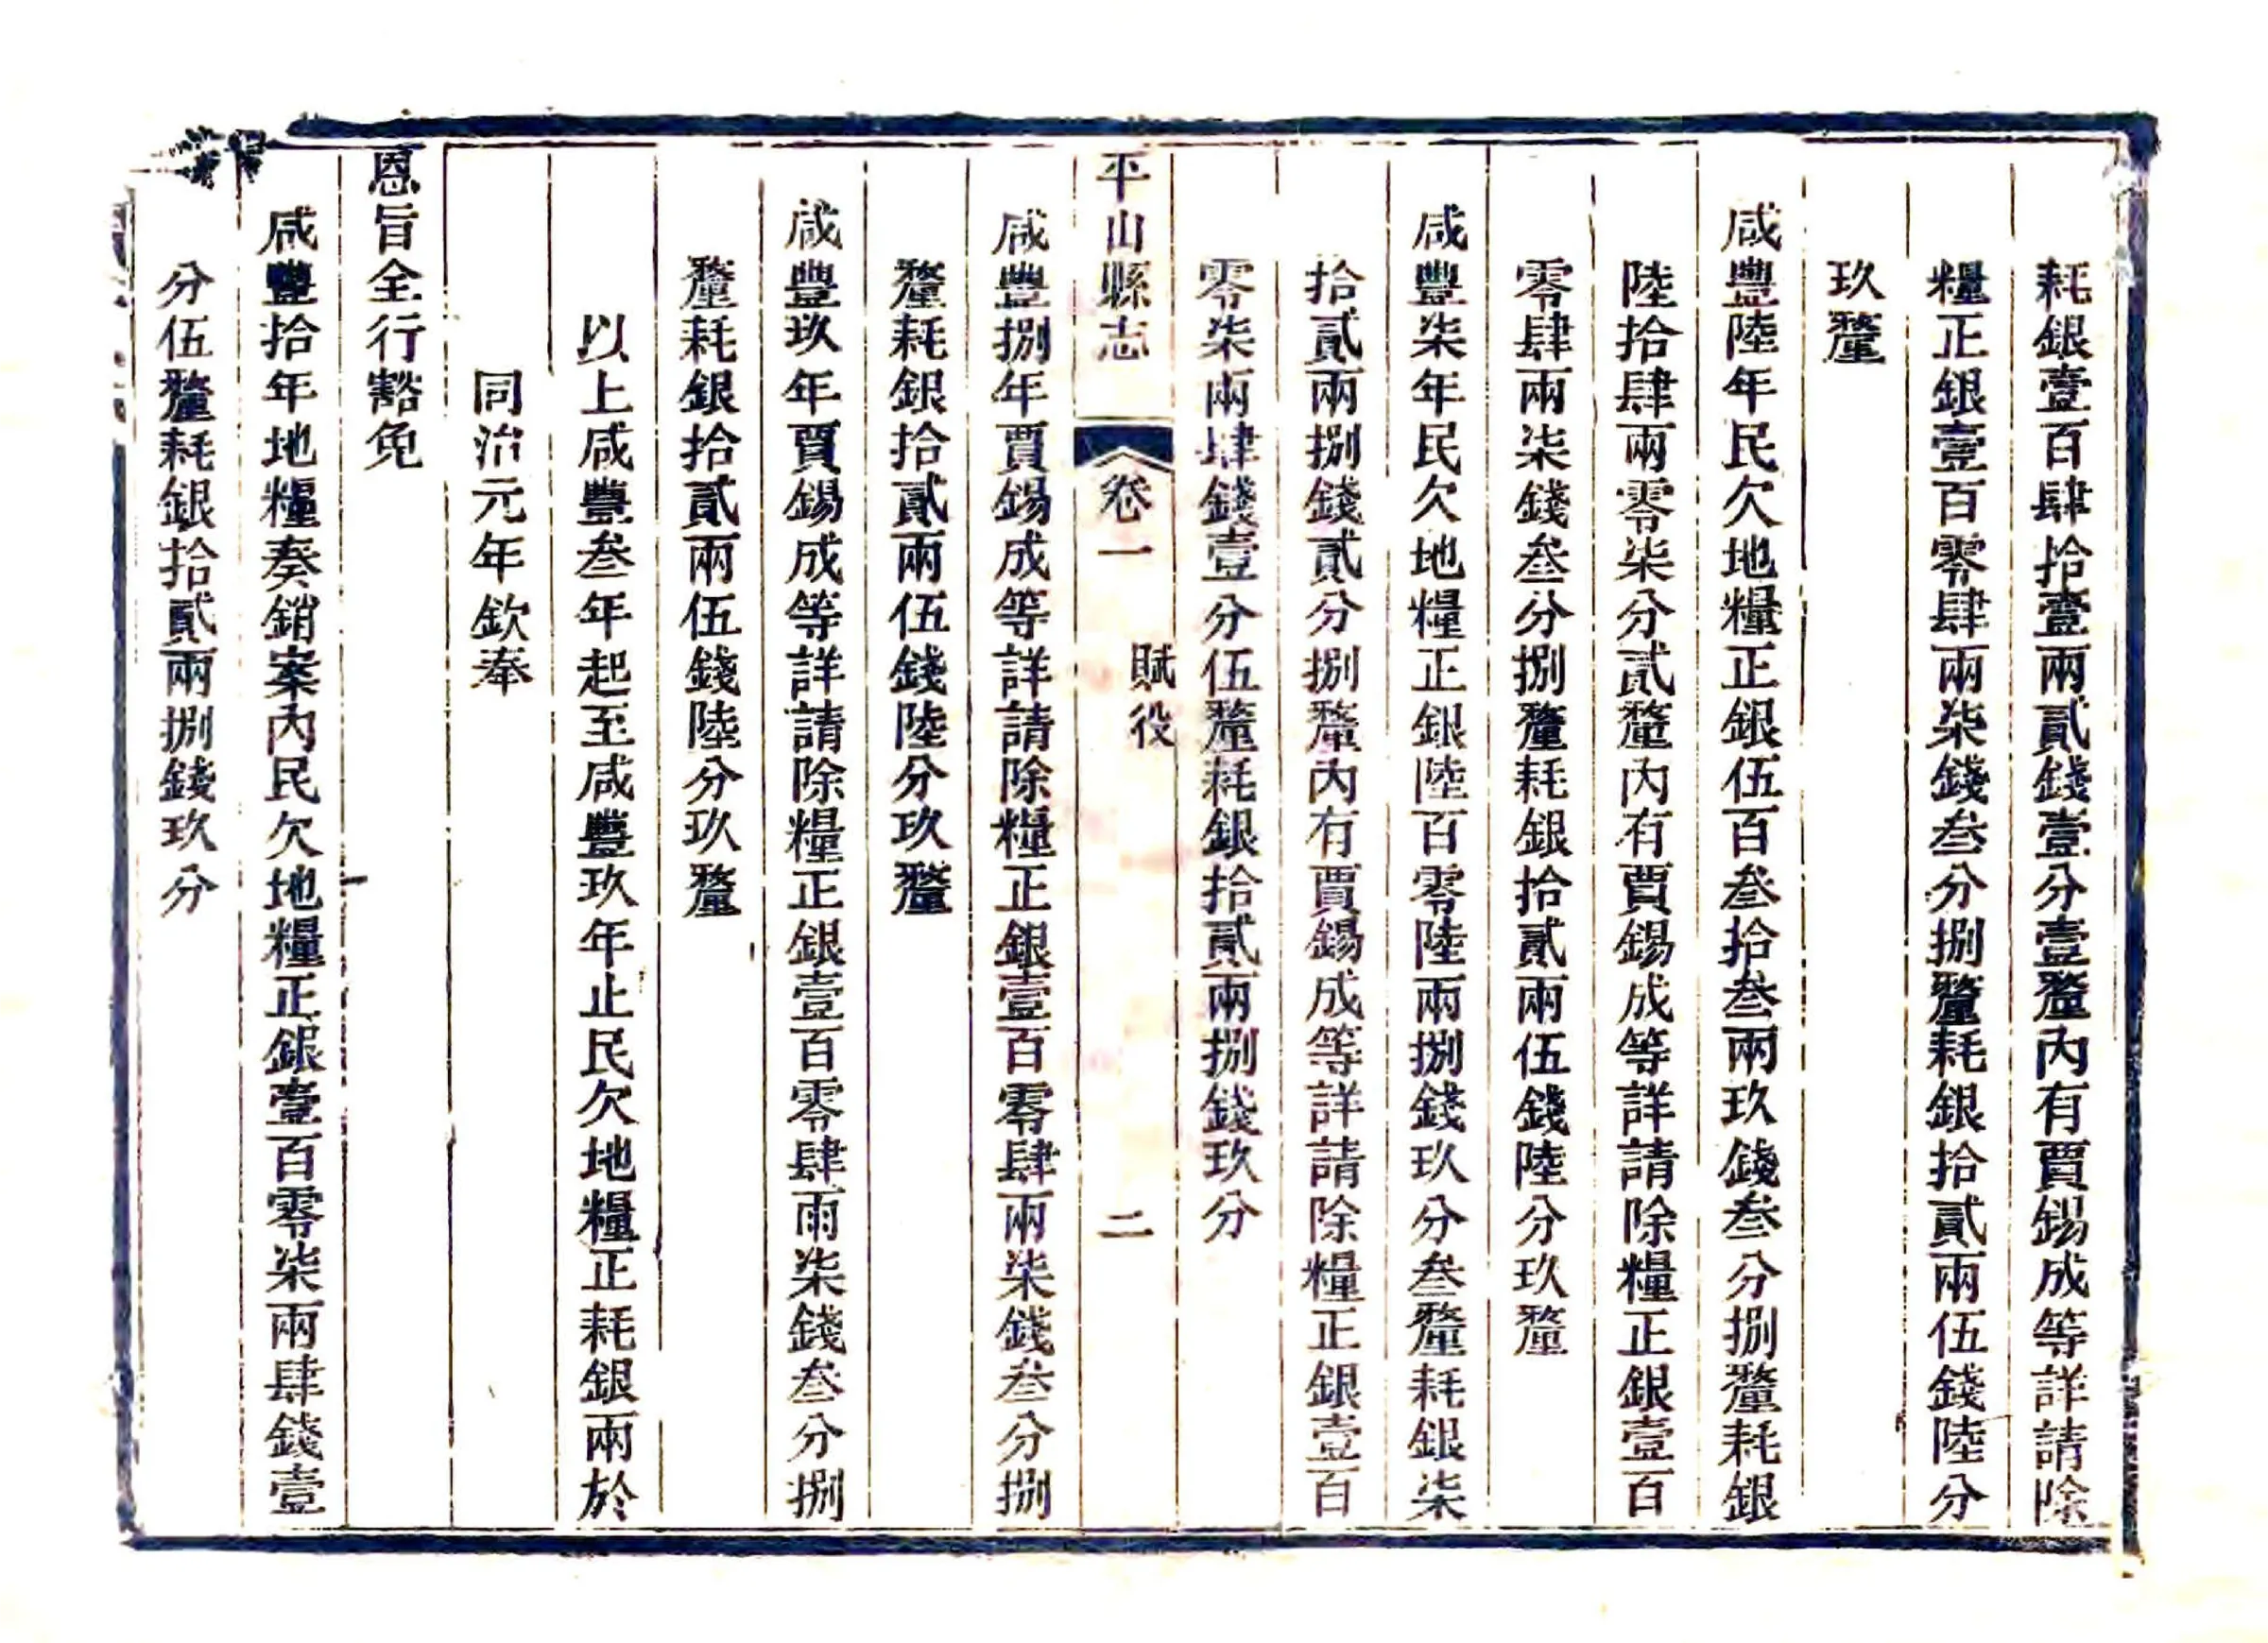 耗銀壹百肆拾壹兩貳錢壹分壹釐內有賈錫成等詳請除
糧正銀壹百零肆兩柒錢叁分捌釐耗銀拾貳兩伍錢陸分
玖釐
咸豐陸年民欠地糧正銀伍百叁拾叁兩玖錢叁分捌釐耗銀
陸拾肆兩零柒分貳釐內有賈錫成等詳請除糧正銀壹百
零肆兩柒錢叁分捌釐耗銀拾貳兩伍錢陸分玖釐
咸豐柒年民欠地糧正銀陸百零陸兩捌錢玖分叁釐耗銀柒
拾貳兩捌錢貳分捌釐內有賈錫成等詳請除糧正銀壹百
零柒兩肆錢壹分伍釐耗銀拾貳兩捌錢玖分
平山縣志 卷一 賦役 二
咸豐捌年賈錫成等詳請除糧正銀壹百零肆兩柒錢叁分捌
釐耗銀拾貳兩伍錢陸分玖釐
咸豐玖年賈錫成等詳請除糧正銀壹百零肆兩柒錢叁分捌
釐耗銀拾貳兩伍錢陸分玖釐
以上咸豐叁年起至咸豐玖年止民欠地糧正耗銀兩於
同治元年欽奉
恩旨全行豁免
咸豐拾年地糧奏銷案內民欠地糧正銀壹百零柒兩肆錢壹
分伍釐耗銀拾貳兩捌錢玖分